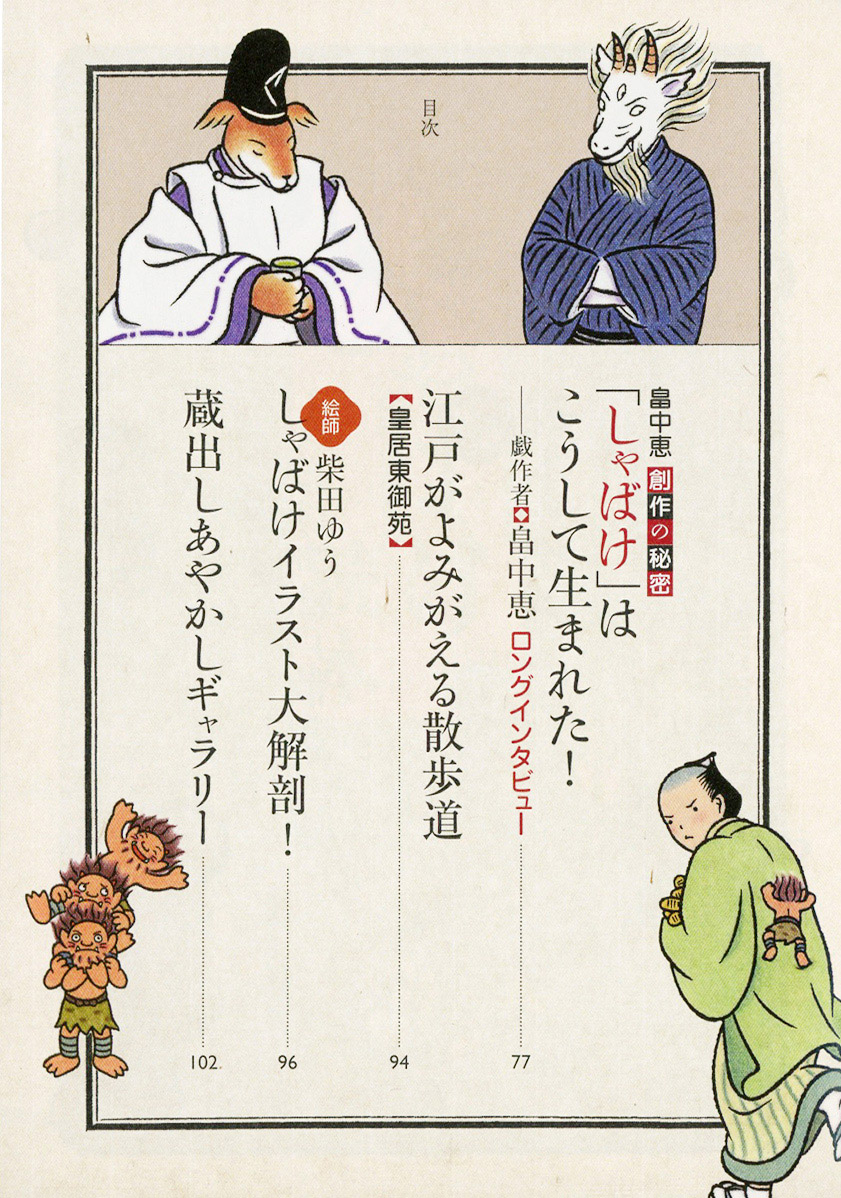 目次
畠中恵 創作の秘密
「しゃばけ」は
こうして生まれた！
──戯作者◆畠中恵 ロングインタビュー 77
江戸がよみがえる散歩道
【皇居東御苑】 94
絵師 柴田ゆう
しゃばけイラスト大解剖！ 96
蔵出しあやかしギャラリー 102